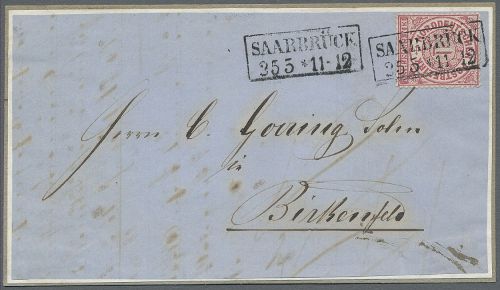 SAARBRÜCK
25 5 * 11-12
SAARBRÜCK
25 5 * 11-12
Herrn C. Goering Sohn
in
Birkenfeld